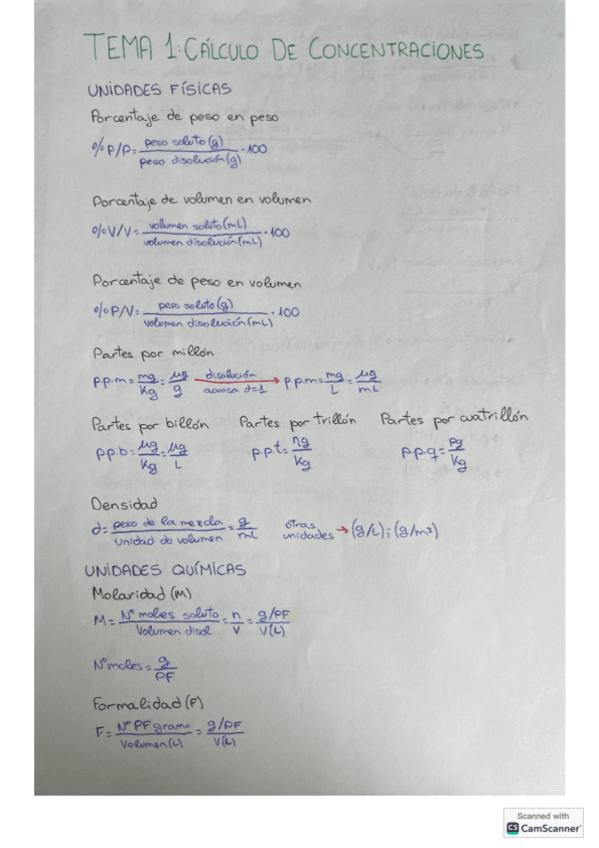 TEMA 1: CÁLCULO DE CONCENTRACIONES
UNIDADES FÍSICAS
Porcentaje de peso en peso
% P/P = peso soluto (g) / peso disolución (g) · 100
Porcentaje de volumen en volumen
% V/V = volumen soluto (mL) / volumen disolución (mL) · 100
Porcentaje de peso en volumen
% P/V = peso soluto (g) / volumen disolución (mL) · 100
Partes por millón
p.p.m = mg/Kg = µg/g disolución acuosa d=1 → p.p.m = mg/L = µg/mL
Partes por billón Partes por trillón Partes por cuatrillón
p.p.b = µg/Kg = µg/L p.p.t = ng/Kg p.p.q = pg/Kg
Densidad
d = peso de la mezcla / unidad de volumen = g/mL otras unidades → (g/L); (g/m³)
UNIDADES QUÍMICAS
Molaridad (M)
M = Nº moles soluto / Volumen disol = n/V = g/PF / V(L)
Nº moles = g/PF
Formalidad (F)
F = Nº PF gramo / Volumen (L) = g/PF / V(L)
Scanned with
CS CamScanner